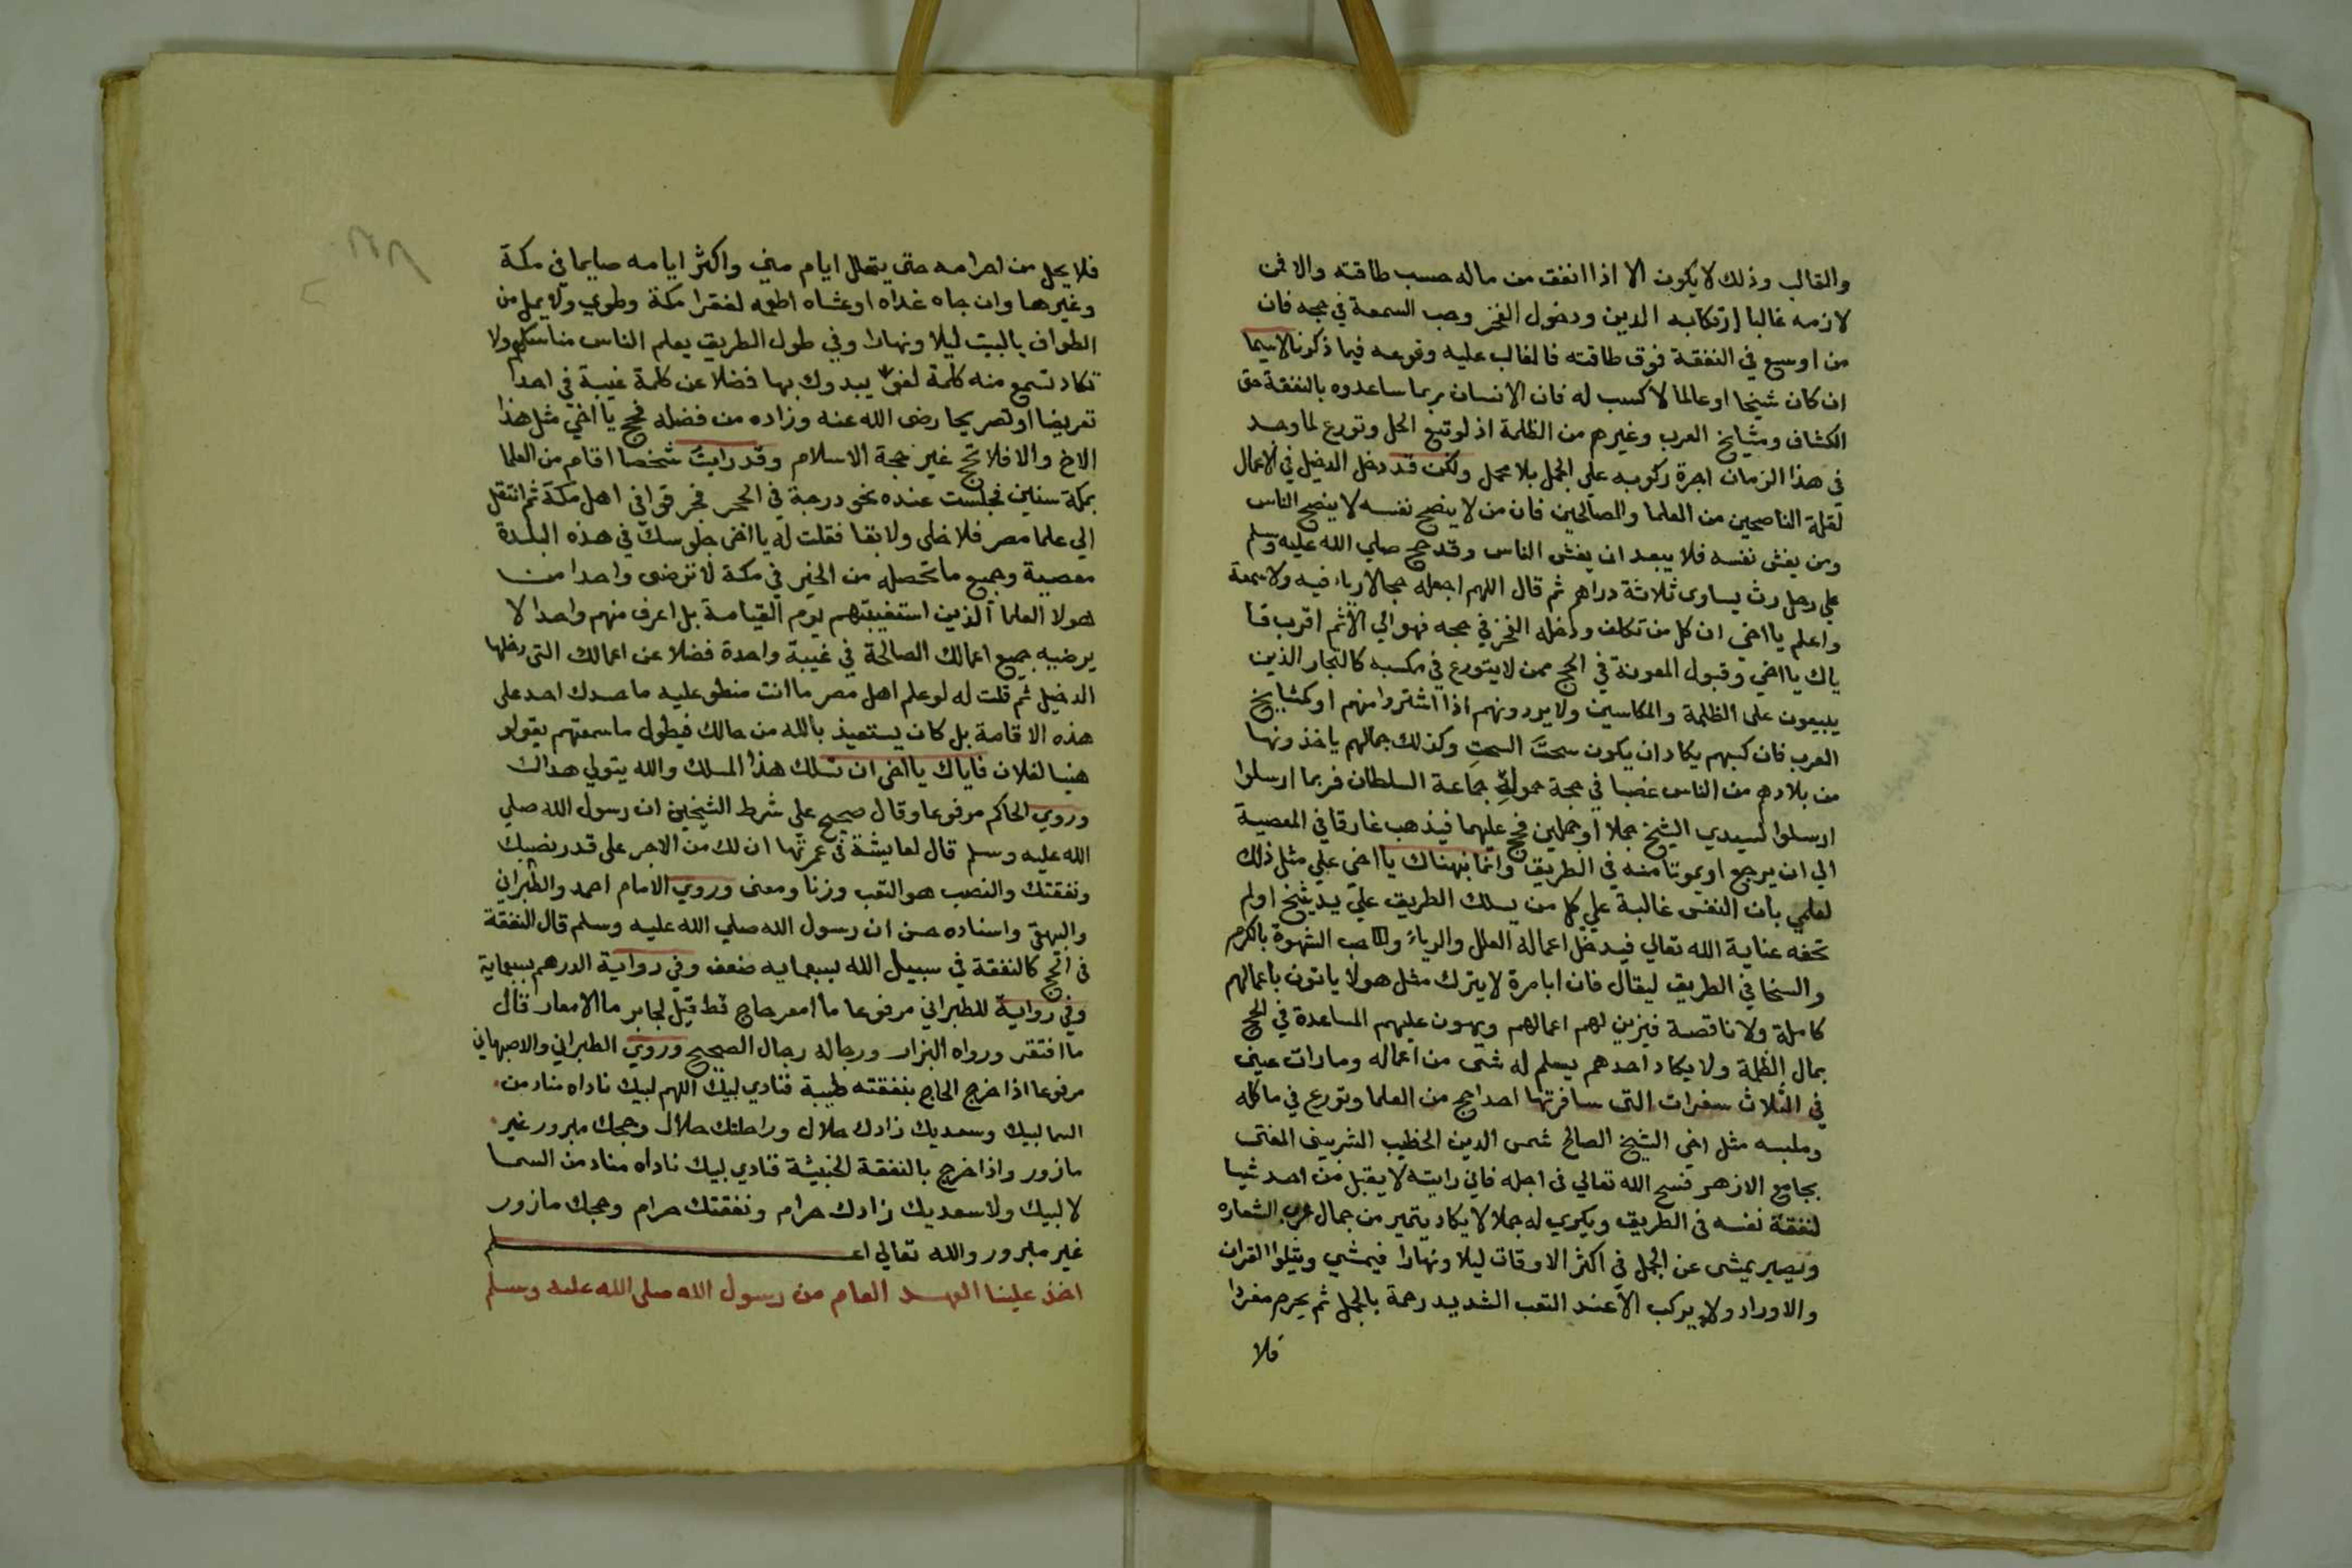 والقالب وذلك لا يكون الا اذا انفق من ماله حسب طاقته والا فمن
لازمه غالبا ارتكابه الدين ودخول الفخر وحب السمعة في حجه فان
من اوسع في النفقة فوق طاقته فالغالب عليه وقوعه فيما ذكرنا لاسيما
ان كان شيخا او عالما لا كسب له فان الانسان ربما ساعدوه بالنفقة حتى
الكشاف ومشايخ العرب وغيرهم من الظلمة اذ لو تتبع الحل وتورع لما وجد
في هذا الزمان اجرة ركوبه على الجمل بلا محمل ولكن قد دخل الدخيل في الاعمال
لقلة الناصحين من العلما والصالحين فان من لا ينصح نفسه لا ينصح الناس
ومن يغش نفسه فلا يبعد ان يغش الناس وقد حج صلي الله عليه وسلم
علي رحل رث يساوى ثلاثة دراهم ثم قال اللهم اجعله حجا لا رياء فيه ولا سمعة
واعلم يا اخي ان كل من تكلف ودخله الفخر في حجه فهو الي الاثم اقرب فا
ياك يا اخي وقبول المعونة في الحج ممن لا يتورع في مكسبه كالتجار الذين
يبيعون على الظلمة والمكاسين ولا يردونهم اذا اشتروا منهم او كمشايخ
العرب فان كسبهم يكاد ان يكون سحتَ السحتِ وكذلك جمالهم ياخذونها
من بلادهم من الناس غصبا في حجة حمولة جماعة السلطان فربما ارسلوا
ارسلوا لسيدي الشيخ جملا او جملين فحج عليهما فيذهب غارقا في المعصية
الي ان يرجع او يموتا منه في الطريق وانما نبهناك يا اخي علي مثل ذلك
لعلمي بان النفس غالبة علي كل من يسلك الطريق علي يد شيخ او لم
تحفه عناية الله تعالي فيدخل اعماله العلل والرياءُ وحب الشهوة بالكرم
والسخا في الطريق ليقال فان ابا مرة لا يترك مثل هولا ياتون باعمالهم
كاملة ولا ناقصة فيزين لهم اعمالهم ويهون عليهم المساعدة في الحج
بمال الظلمة ولا يكاد احدهم يسلم له شى من اعماله وما رات عيني
في الثلاث سفرات التى سافرتها احدا حج من العلما وتورع في ماكله
وملبسه مثل اخي الشيخ الصالح شمس الدين الخطيب الشربيني المفتى
بجامع الازهر فسح الله تعالي فى اجله فاني رايته لا يقبل من احد شيا
لنفقة نفسه فى الطريق ويكري له جملا لا يكاد يتميز من جمال عرب الشعاره
ويصير يمشى عن الجمل في اكثر الاوقات ليلا ونهارا فيمشي ويتلوا القران
والاوراد ولا يركب الا عند التعب الشديد رحمة بالجمل ثم يحرم مفردا
فلا
فلا يحل من احرامه حتى يتحلل ايام منى واكثر ايامه صايما في مكة
وغيرها وان جاه غداه او عشاه اطعمه لفقرا مكة وطوي ولا يمل من
الطواف بالبيت ليلا ونهارا وفي طول الطريق يعلم الناس مناسكهم ولا
تكاد تسمع منه كلمة لغو يبدوك بها فضلا عن كلمة غيبة في احد
تعريضا او تصريحا رضى الله عنه وزاده من فضله فحج يا اخي مثل هذا
الاخ والا فلا تحج غير حجة الاسلام وقد رايت شخصا اقام من العلما
بمكة سنين فجلست عنده نحو درجة في الحجر فخرق في اهل مكة ثم انتقل
الي علما مصر فلا خلى ولا بقا فقلت له يا اخى جلوسك في هذه البلدة
معصية وجميع ما تحصله من الخير في مكة لا ترضى واحدا من
هولا العلما الذين استغيبتهم يوم القيامة بل اعرف منهم واحدا لا
يرضيه جميع اعمالك الصالحة في غيبة واحدة فضلا عن اعمالك التى دخلها
الدخيل ثم قلت له لو علم اهل مصر ما انت منطو عليه ما حسدك احد على
هذه الاقامة بل كان يستعيذ بالله من حالك فيطول ما سمعتهم يقولو
هنيا لفلان فاياك يا اخى ان تسلك هذا المسلك والله يتولي هداك
وروي الحاكم مرفوعا وقال صحيح علي شرط الشيخين ان رسول الله صلي
الله عليه وسلم قال لعايشة في عمرتها ان لك من الاجر على قدر نصبك
ونفقتك والنصب هو التعب وزنا ومعنى وروي الامام احمد والطبراني
والبيهقي واسناده حسن ان رسول الله صلي الله عليه وسلم قال النفقة
فى الحج كالنفقة في سبيل الله بسبعمايه ضعف وفي رواية الدرهم بسبعماية
وفي رواية للطبراني مرفوعا ما امعر حاج قط قيل لجابر ما الامعار قال
ما افتقر ورواه البزار ورجاله رجال الصحيح وروي الطبراني والاصبهاني
مرفوعا اذا خرج الحاج بنفقته طيبة فنادي لبيك اللهم لبيك ناداه مناد من
السما لبيك وسعديك زادك حلال وراحلتك حلال وحجك مبرور غير
مازور واذا خرج بالنفقة الخبيثة فنادي لبيك ناداه مناد من السما
لا لبيك ولا سعديك زادك حرام ونفقتك حرام وحجك مازور
غير مبرور والله تعالي اعلم
اخذ علينا العهد العام من رسول الله صلى الله عليه وسلم